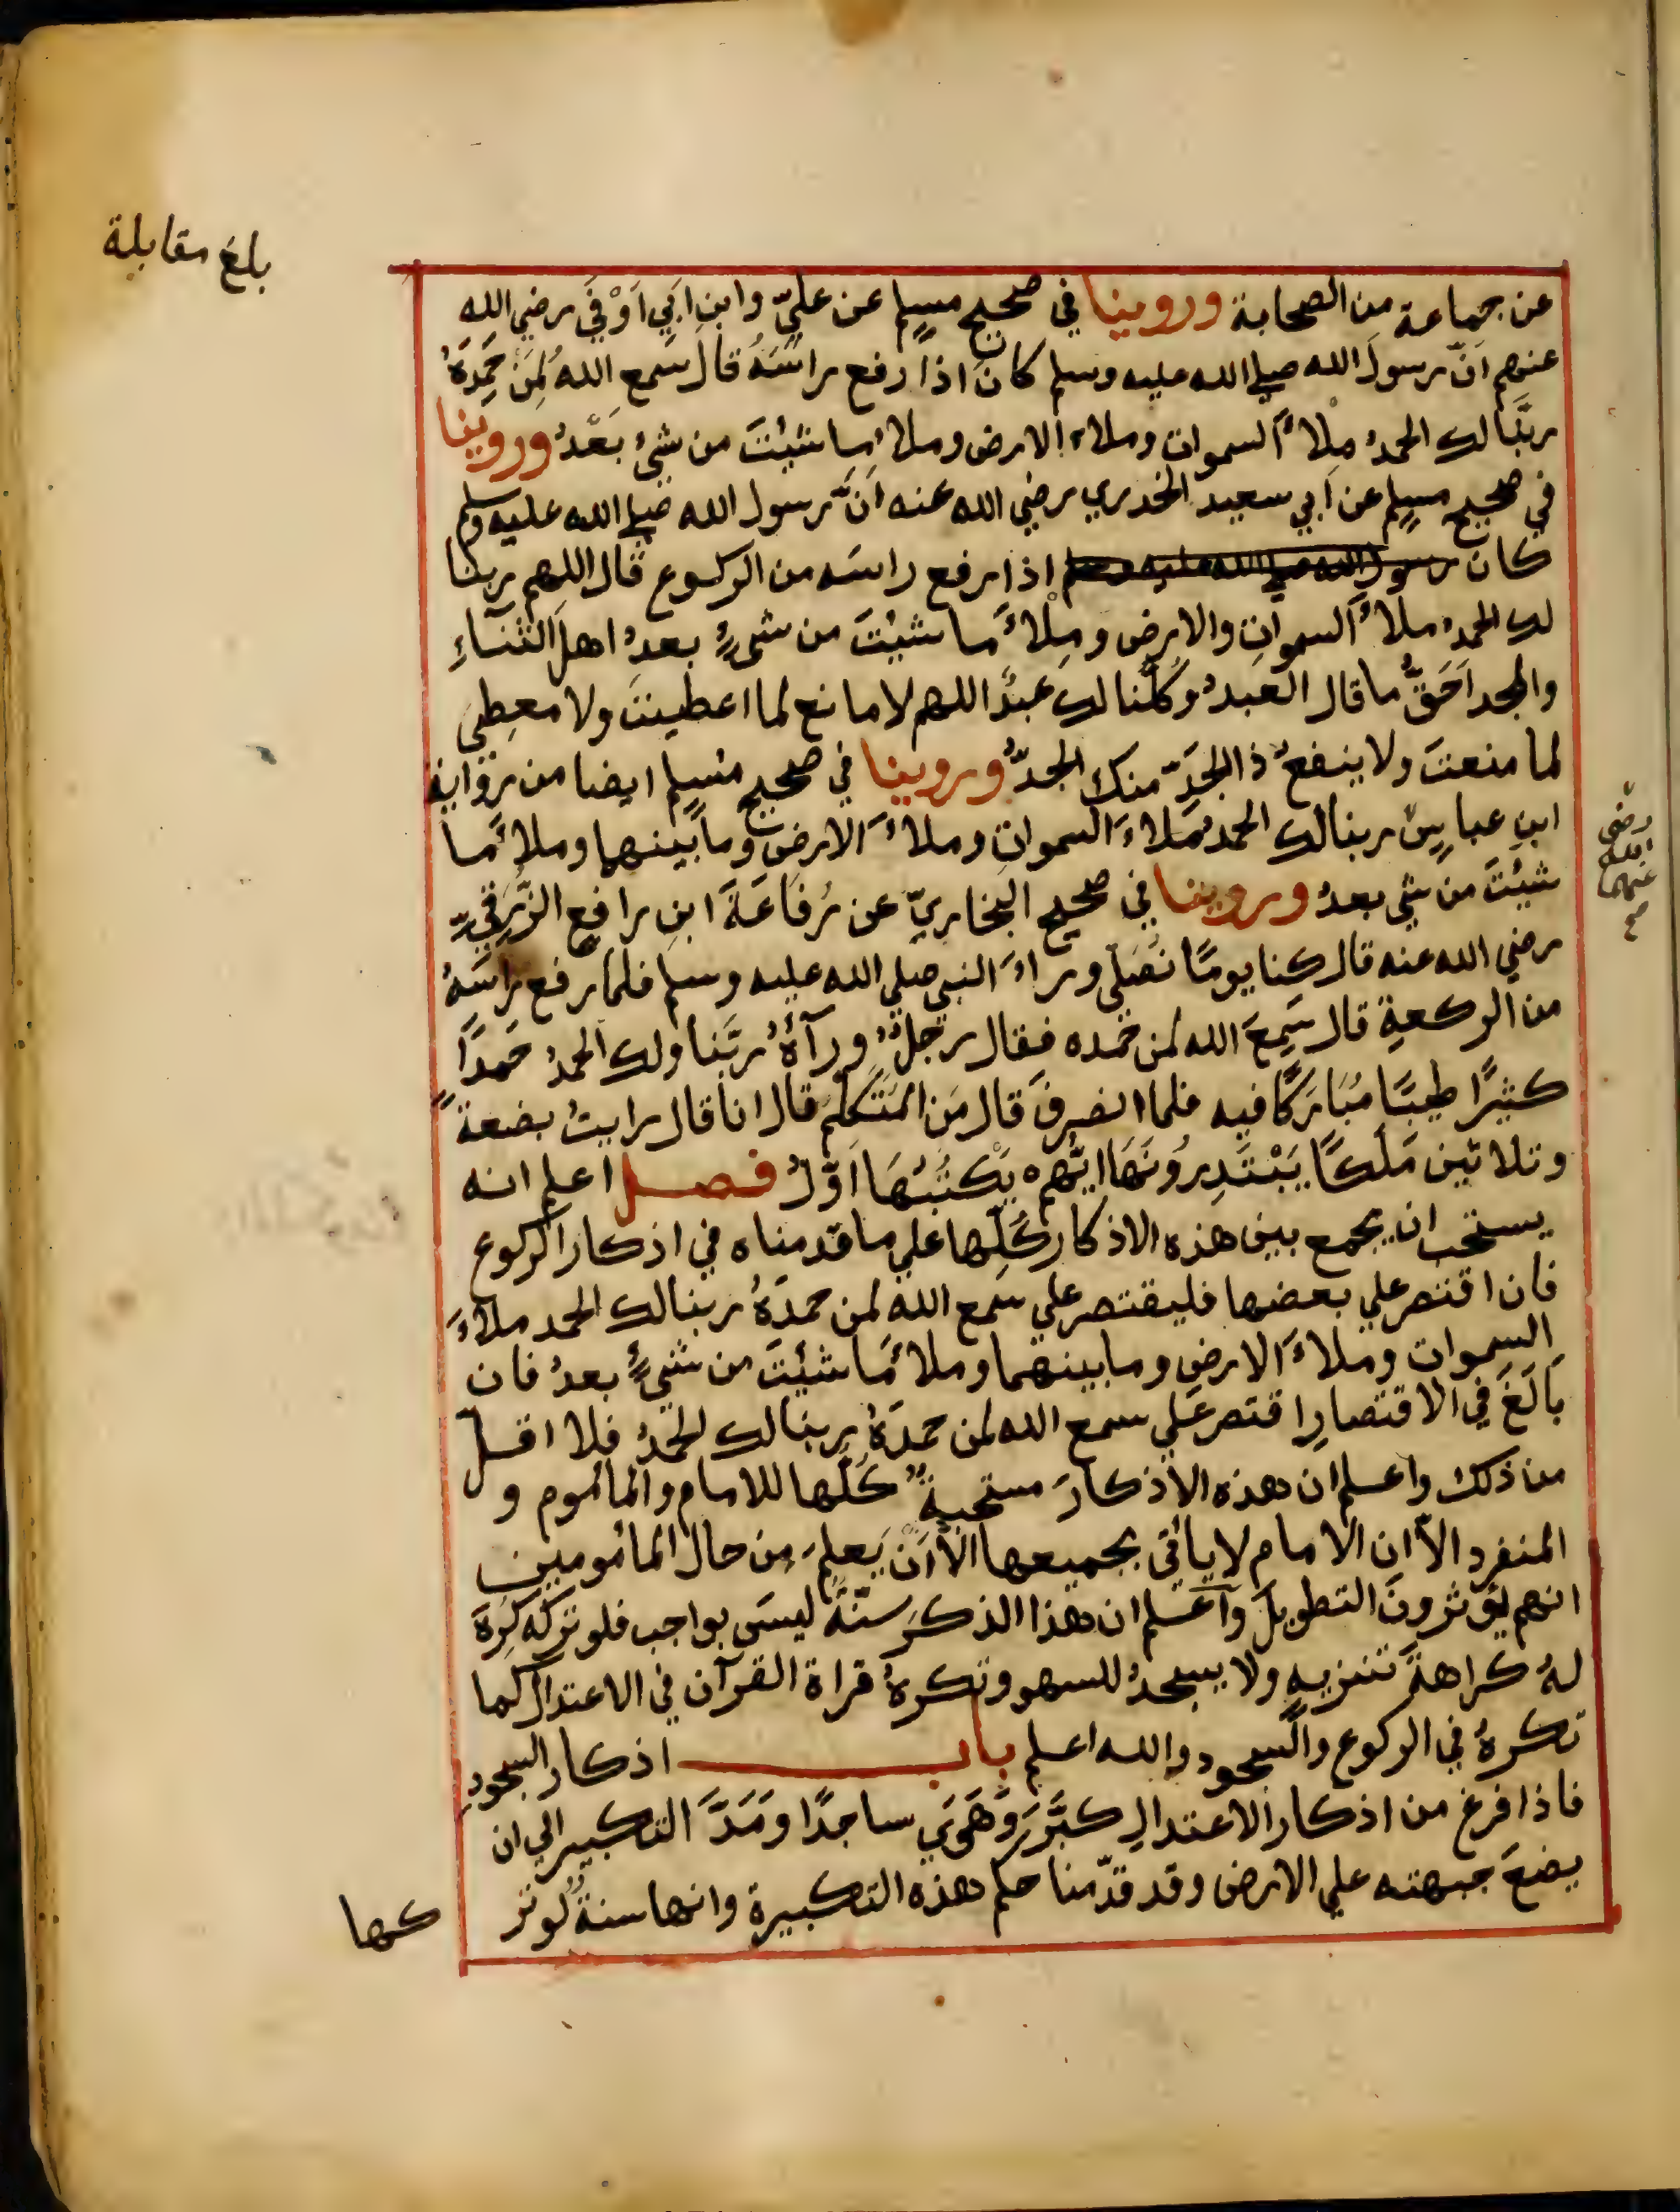 بلغ مقابلة
عن جماعة من الصحابة وروينا في صحيح مسلم عن عليّ وابن ابي اوْفي رضي الله
عنهم انّ رسول الله صلي الله عليه وسلم كان اذا رفع راسَهُ قال سمع الله لمن حَمِدَهُ
ربّنا لك الحمدُ مِلأَ السموات وملاء الارض وملاء ما شيئتَ من شيءٍ بَعْدُ وروينا
في صحيح مسلم عن ابي سعيد الخدري رضي الله عنه انَّ رسول الله صلي الله عليه وسلم
كان رسول الله صلي الله عليه وسلم اذا رفع راسَه من الركوع قال اللهم ربنا
لك الحمد ملاَءَ السمواتِ والارضِ ومِلْاَءَ ما شيئتَ من شيءٍ بعدُ اهلَ الثنآءِ
والمجد احَقُّ ما قال العبدُ وكلّنا لك عبدٌ اللهم لا مانع لما اعطيتَ ولا معطِيَ
لما منعتَ ولا ينفعُ ذا الجَدِّ منك الجدُّ وروينا في صحيح مسلم ايضا من رواية
ابنِ عباسٍ ربنا لك الحمد ملاءَ السمواتِ وملاءَ الارضِ وما بينهما وملاءَ ما
رضي
الله
عنهما
صح
شيئتَ من شي بعدُ وروينا في صحيح البخاريّ عن رُفَاعَةَ ابنِ رافعٍ الزُّرَقيِّ
رضي الله عنه قال كنا يومًا نُصَلي وراءَ النبي صلي الله عليه وسلم فلما رفع راسَهُ
من الركعةِ قال سَمِعَ الله لمن حمده فقال رجلٌ ورآءَهُ ربَّنا ولك الحمدُ حَمدًا
كثيرًا طيبًا مُبَارَكًا فيه فلما انصرفَ قال مَن المُتَكلّم قال انا قال رايتُ بضعةً
وثلاثين مَلَكًا يَبْتَدِرُونَهَا ايُّهم يَكْتُبُهَا اوّلُ فصل اعلم انه
يستحب ان يجمع بين هذه الاذكار كُلّها علي ما قدمناه في اذكار الركوع
فان اقتصر علي بعضها فليقتصر علي سمع الله لمن حمدَهُ ربنا لك الحمد ملاءَ
السموات وملاءَ الارضِ وما بينهما وملاَءَ ما شيئتَ من شيءٍ بعدُ فان
بَالَغَ في الاقتصارِ اقتصر عَلي سمع الله لمن حمدَهُ ربنا لك الحمدُ فلا اقل
من ذلك واعلم ان هذه الاذكارَ مستحبةٌ كلّها للامام والماموم و
المنفرد الاّ ان الامام لا ياتي بجميعها الاّ اَنْ يَعلم من حال المامومين
انهم يؤثرونَ التطويلَ واعلم ان هذا الذكرَ سنّةٌ ليسَ بواجب فلو تركه كُرِهَ
لهُ كراهةَ تنزيهٍ ولا يسجدُ للسهو وتكرهُ قراة القرآن في الاعتدال كما
تكرهُ في الركوع والسجود والله اعلم باب اذكار السجودِ
فاذا فرغ من اذكار الاعتدالِ كبَّر وَهَوَي ساجدًا ومَدَّ التكبير الي ان
يضعَ جبهته علي الارض وقد قدّمنا حكم هذه التكبيرة وانها سنةٌ لو تر
كها